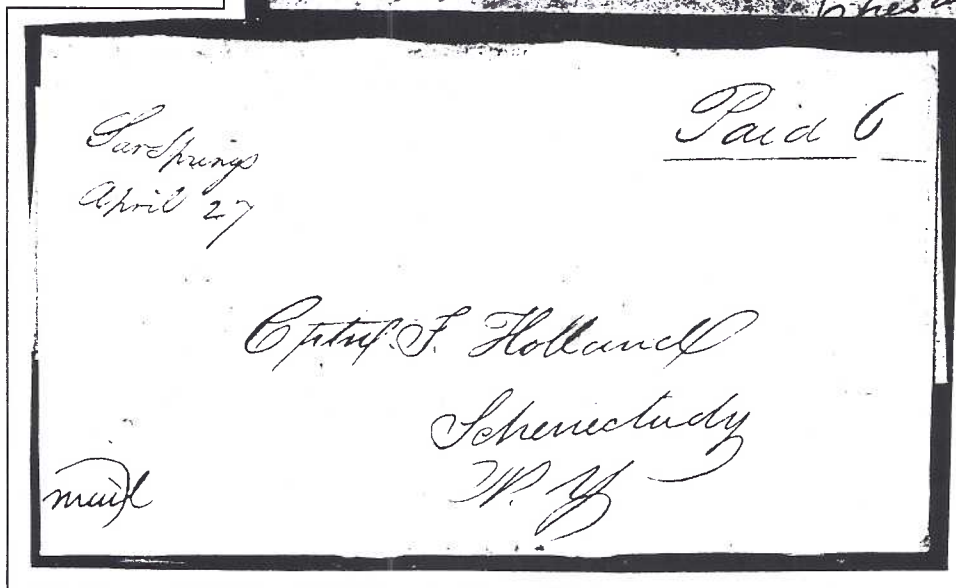 Sar Springs
April 27
Paid 6
F. Holland
Schenectady
N. Y
mail